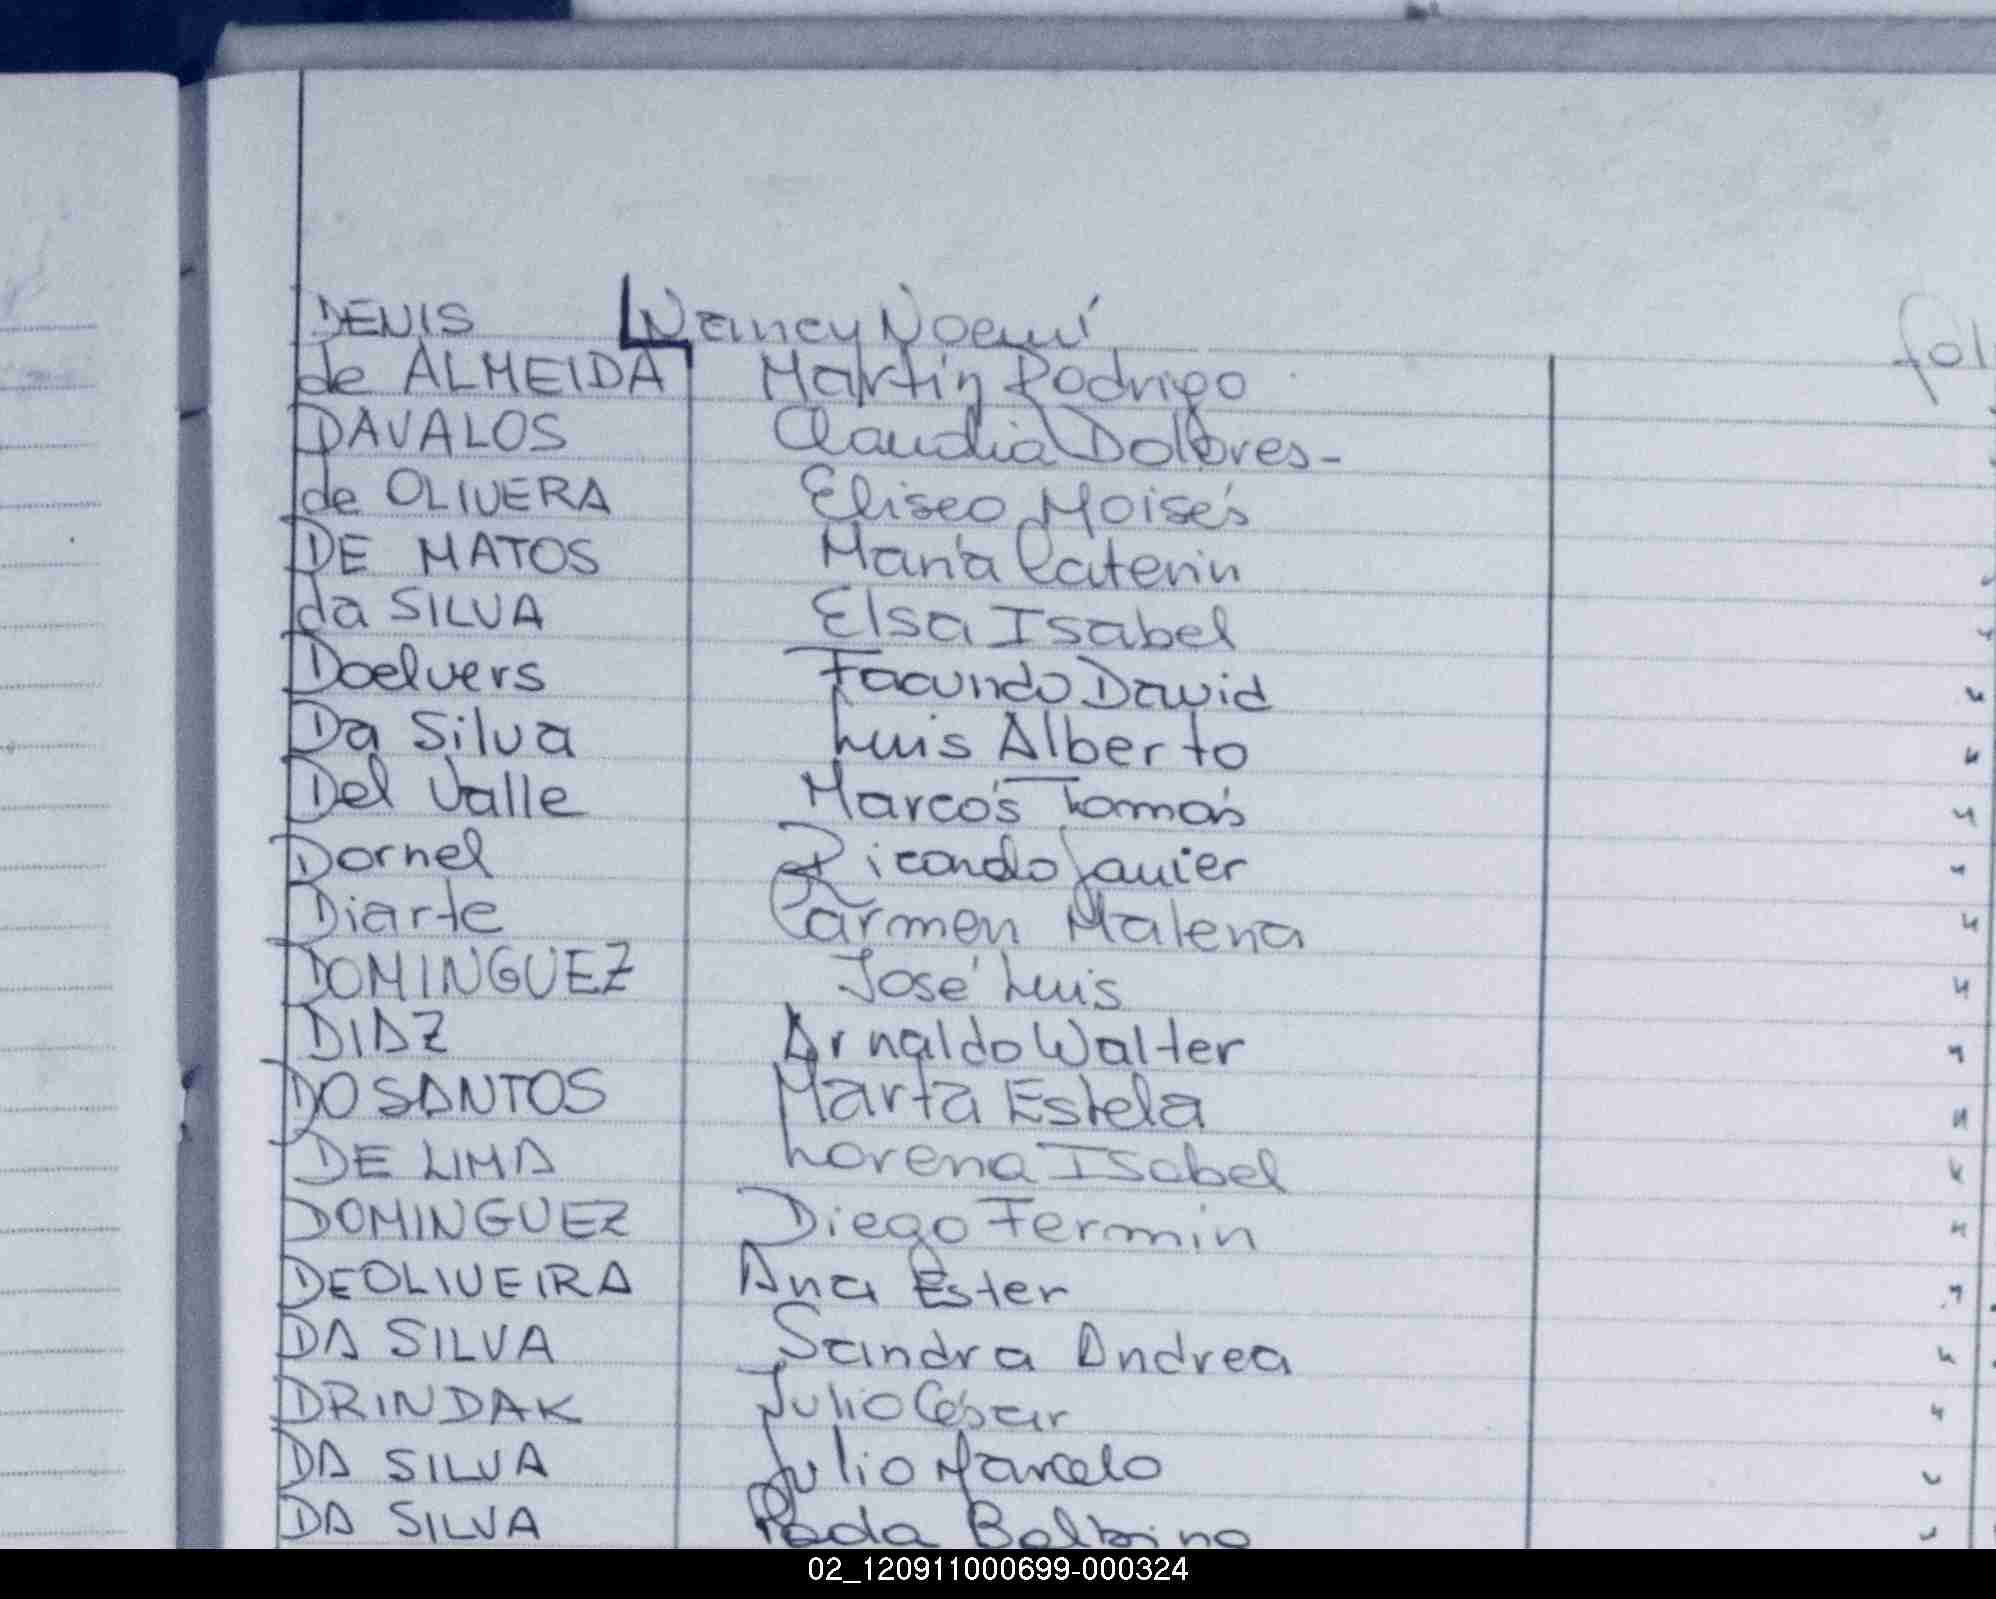 DENIS Nancy Noemí fol
de ALMEIDA Martín Rodrigo
DAVALOS Claudia Dolores-
de OLIVERA Eliseo Moisés
DE MATOS María Caterin
da SILVA Elsa Isabel
Doelvers Facundo David
Da Silva Luis Alberto
Del Valle Marcos Tomás
Dornel Ricardo Javier
Diarte Carmen Malena
DOMINGUEZ José Luis
DIAZ Arnaldo Walter
DO SANTOS Marta Estela
DE LIMA Lorena Isabel
DOMINGUEZ Diego Fermin
DEOLIVEIRA Ana Ester
DA SILVA Sandra Andrea
DRINDAK Julio César
DA SILVA Julio Marcelo
DA SILVA Balbina
02_120911000699-000324